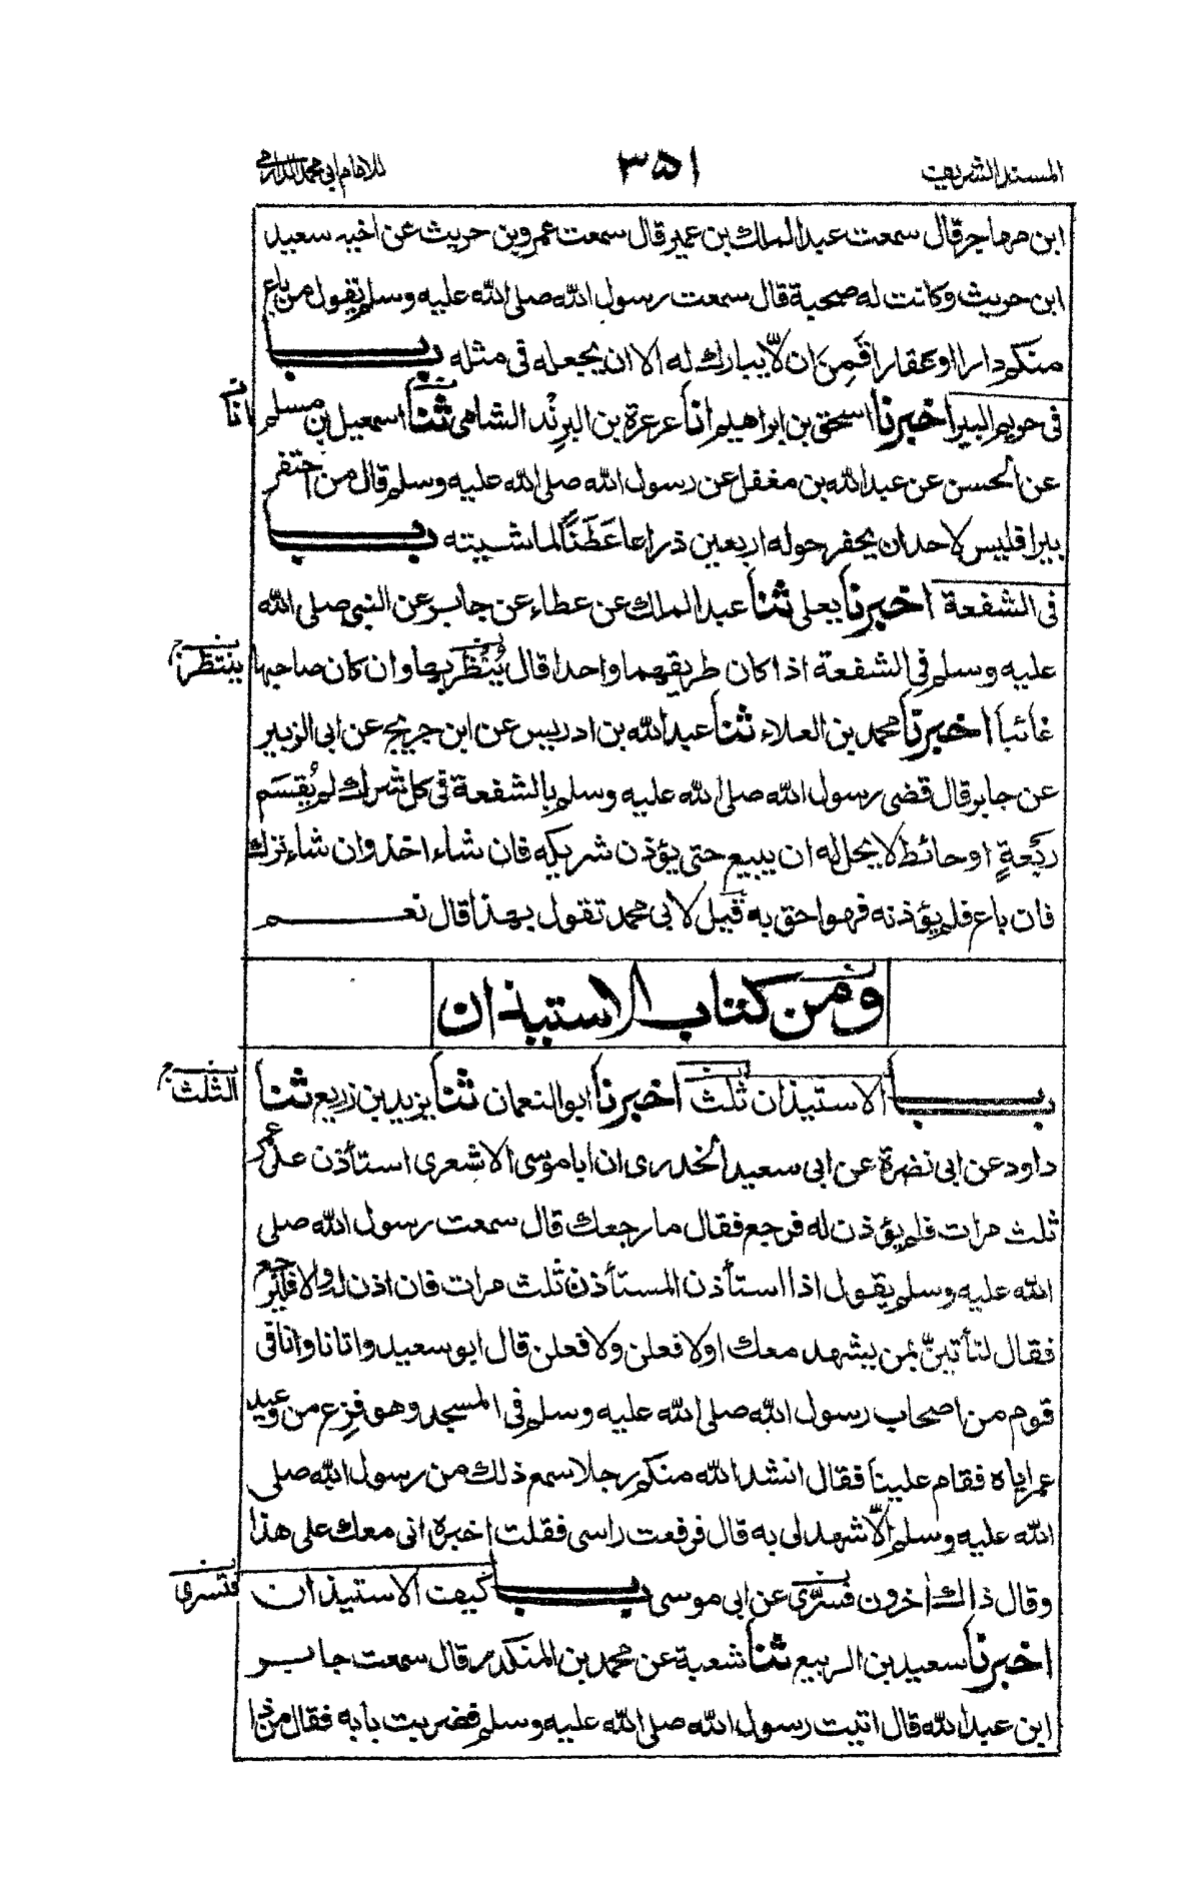 المسند الشريف
٣٥١
للامام ابى محمد الدارمى
ابن مهاجر قال سمعت عبد الملك بن عمير قال سمعت عمرو بن حريث عن اخيه سعيد
ابن حريث وكانت له صحبة قال سمعت رسول الله صلى الله عليه وسلم يقول من باع
منكم دارا او عقارا قَمِنَ ان لّا يبارك له الا ان يجعله فى مثله باب
فى حريم البير اخبرنا اسحق بن ابراهيم انا عرعرة بن البِرِنْد الشامى ثنا اسمعيل بن مسلم
انا
عن الحسن عن عبد الله بن مغفل عن رسول الله صلى الله عليه وسلم قال من احتفر
بيرا فليس لاحد ان يحفر حوله اربعين ذراعا عَطَنًا لماشيته باب
فى الشفعة اخبرنا يعلى ثنا عبد الملك عن عطاء عن جابر عن النبى صلى الله
عليه وسلم فى الشفعة اذا كان طريقهما واحدا قال يُنْتَظَر بها وان كان صاحبها
ينتظر
غائبا اخبرنا محمد بن العلاء ثنا عبد الله بن ادريس عن ابن جريج عن ابى الزبير
عن جابر قال قضى رسول الله صلى الله عليه وسلم بالشفعة فى كل شرك لم يُقسَم
رَبْعةٍ او حائط لا يحل له ان يبيع حتى يؤذن شريكه فان شاء اخذ وان شاء ترك
فان باع فلم يؤذنه فهو احق به قيل لابى محمد تقول بهذا قال نعم
ومن كتاب الاستيذان
باب الاستيذان ثلث اخبرنا ابو النعمان ثنا يزيد بن زريع ثنا
الثلث
داود عن ابى نضرة عن ابى سعيد الخدرى ان ابا موسى الاشعرى استأذن على عمر
ثلث مرات فلم يؤذن له فرجع فقال ما رجعك قال سمعت رسول الله صلى
الله عليه وسلم يقول اذا استأذن المستأذن ثلث مرات فان اذن له والا فليرجع
فقال لتأتينّ بمن يشهد معك او لافعلن ولافعلن قال ابو سعيد واتانا وانا فى
قوم من اصحاب رسول الله صلى الله عليه وسلم فى المسجد وهو فزع من وعيد
عمر اياه فقام علينا فقال انشد الله منكم رجلا سمع ذلك من رسول الله صلى
الله عليه وسلم الّا شهد لى به قال فرفعت راسى فقلت اخبره انى معك على هذا
وقال ذاك اخرون فسُرّى عن ابى موسى باب كيف الاستيذان
فتسرى
اخبرنا سعيد بن الربيع ثنا شعبة عن محمد بن المنكدر قال سمعت جابر
ابن عبد الله قال اتيت رسول الله صلى الله عليه وسلم فضربت بابه فقال من ذا